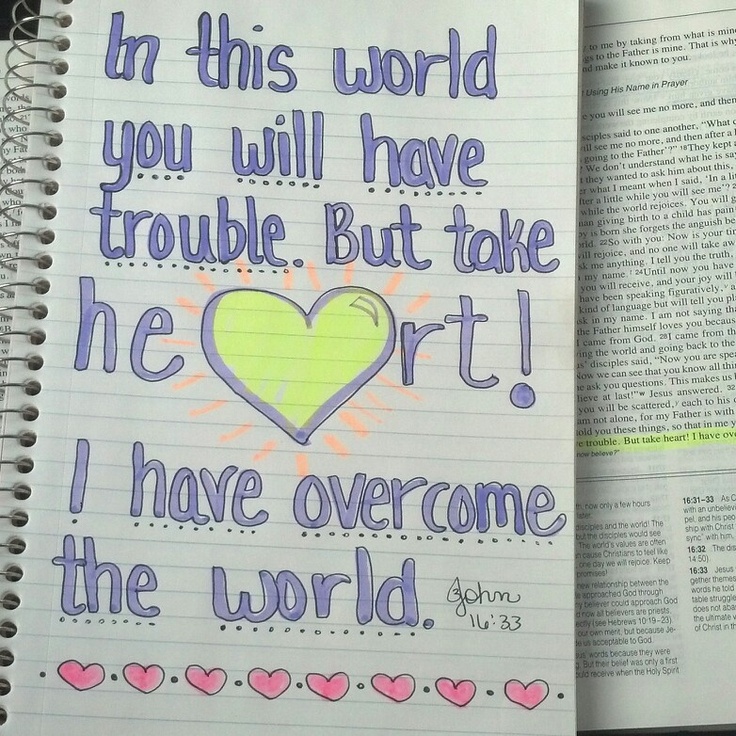 In this world
you will have
trouble. But take
he rt!
I have overcome
the world.
John
16:33
to me by taking from what is mine
to the Father is mine. That is why
make it known to you.
Using His Name in Prayer
you will see me no more, and then
said to one another, "What
see me no more, and then after a
going to the Father'?" 18They kept
We don't understand what he is
they wanted to ask him about this,
what I meant when I said, 'In a
a little while you will see me'?
while the world rejoices. You will
giving birth to a child has pain
is born she forgets the anguish
22So with you: Now is your
rejoice, and no one will take
me anything. I tell you the truth,
my name. 24Until now you have
you will receive, and your joy will
have been speaking figuratively,
kind of language but will tell you
in my name. I am not saying that
the Father himself loves you because
I came from God. 28I came from the
the world and going back to the
disciples said, "Now you are
Now we can see that you know all
ask you questions. This makes us
at last!" Jesus answered. 32
you will be scattered, each to his
am not alone, for my Father is with
told you these things, so that in me
trouble. But take heart! I have
now believe?"
now only a few hours
disciples and the world! The
but the disciples would see
The world's values are often
cause Christians to feel like
one day we will rejoice. Keep
promises!
new relationship between the
approached God through
believer could approach God
now all believers are priests.
(see Hebrews 10:19–23).
our own merit, but because
us acceptable to God.
words because they were
But their belief was only a first
receive when the Holy Spirit
16:31–33 As
with an
and his
ship with Christ
sync" with him.
16:32 The
14:50).
16:33 Jesus
gether themes
words he told
table struggle
does not
the ultimate
of Christ in